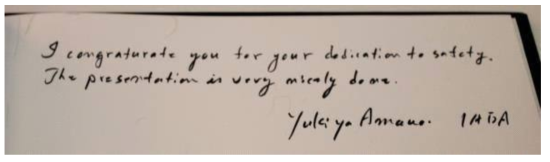 I congraturate you for your dedication to safety.
The presentation is very nicely done.
Yukiya Amano. IAEA